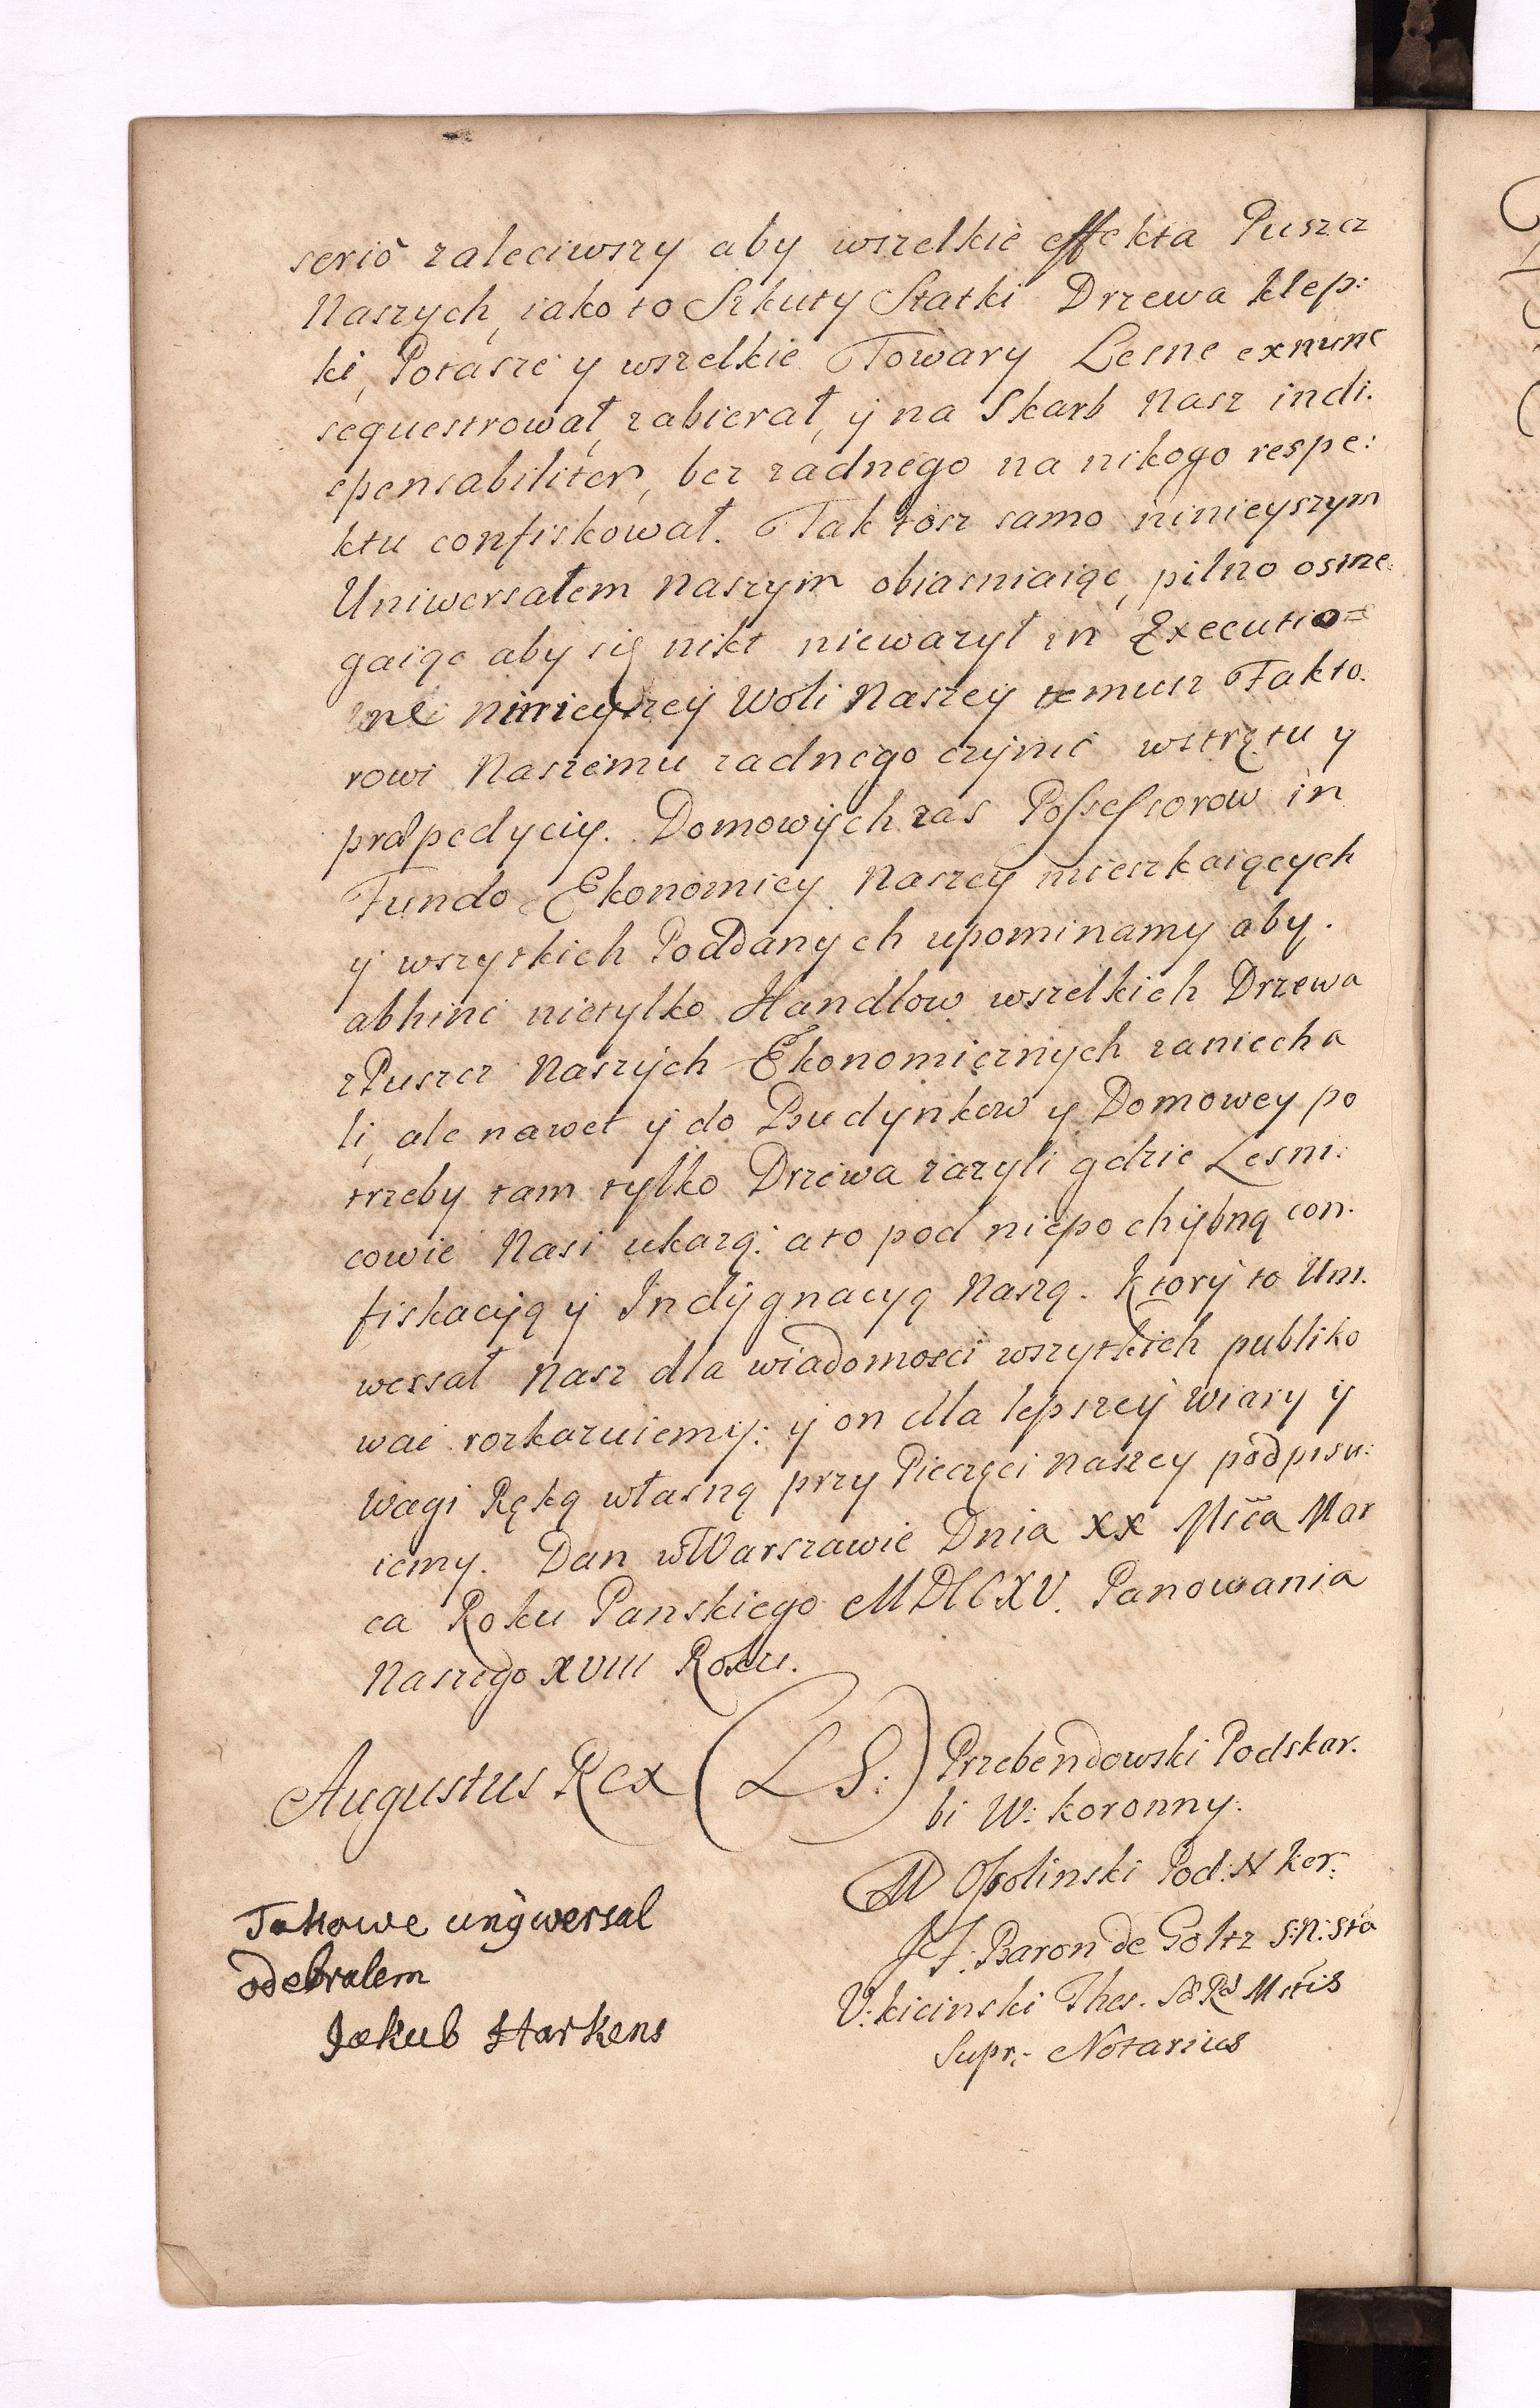 serio zaleciwszy aby wszelkie effekta Puszcz
Naszych, iako to Szkuty Statki Drzewa klep:
ki, Potasze y wszelkie Towary Lesne exnunc
sequestrował, zabierał, y na Skarb Nasz indi.
spensabiliter, bez zadnego na nikogo respe:
ktu confiskował. Tak tosz samo ninieyszym
Uniwersałem Naszym obiasniaiąc, pilno ostrze
gaiąc aby się nikt niewazył in Executio=
ne ninieyszey Woli Naszey temusz Fakto.
rowi Naszemu zadnego czynić wstrętu y
præpedyciy. Domowych zas Possessorow in
Fundo Ekonomiey Naszey mieszkaiących
y wszytkich Poddanych upominamy aby.
abhinc nietylko Handlow wszelkich Drzewa
zPuszcz Naszych Ekonomicznych zaniecha
li, ale nawet y do Budynkow y Domowey po
trzeby tam tylko Drzewa zazyli gdzie Lesni:
cowie Nasi ukazą: a to pod niepochybną con.
fiskacyą y Indygnacyą Naszą. Ktory to Uni.
wersał Nasz dla wiadomosci wszytkich publiko
wac rozkazuiemy: y on dla lepszey wiary y
wagi Ręką własną przy Pieczęci Naszey podpisu:
iemy. Dan wWarszawie Dnia XX Mca Mar
ca Roku Panskiego MDCCXV. Panowania
Naszego XVIII Roku.
Augustus Rex (LS:) Przebendowski Podskar.
bi W: koronny.
M Ossolinski Pod: N kor:
J J: Baron de Goltz S: N: sta
V: kicinski Thes. Sæ Ræ Mtis
Supr: Notarius
Takowe unÿwersal
odebralem
Jakub Harkens